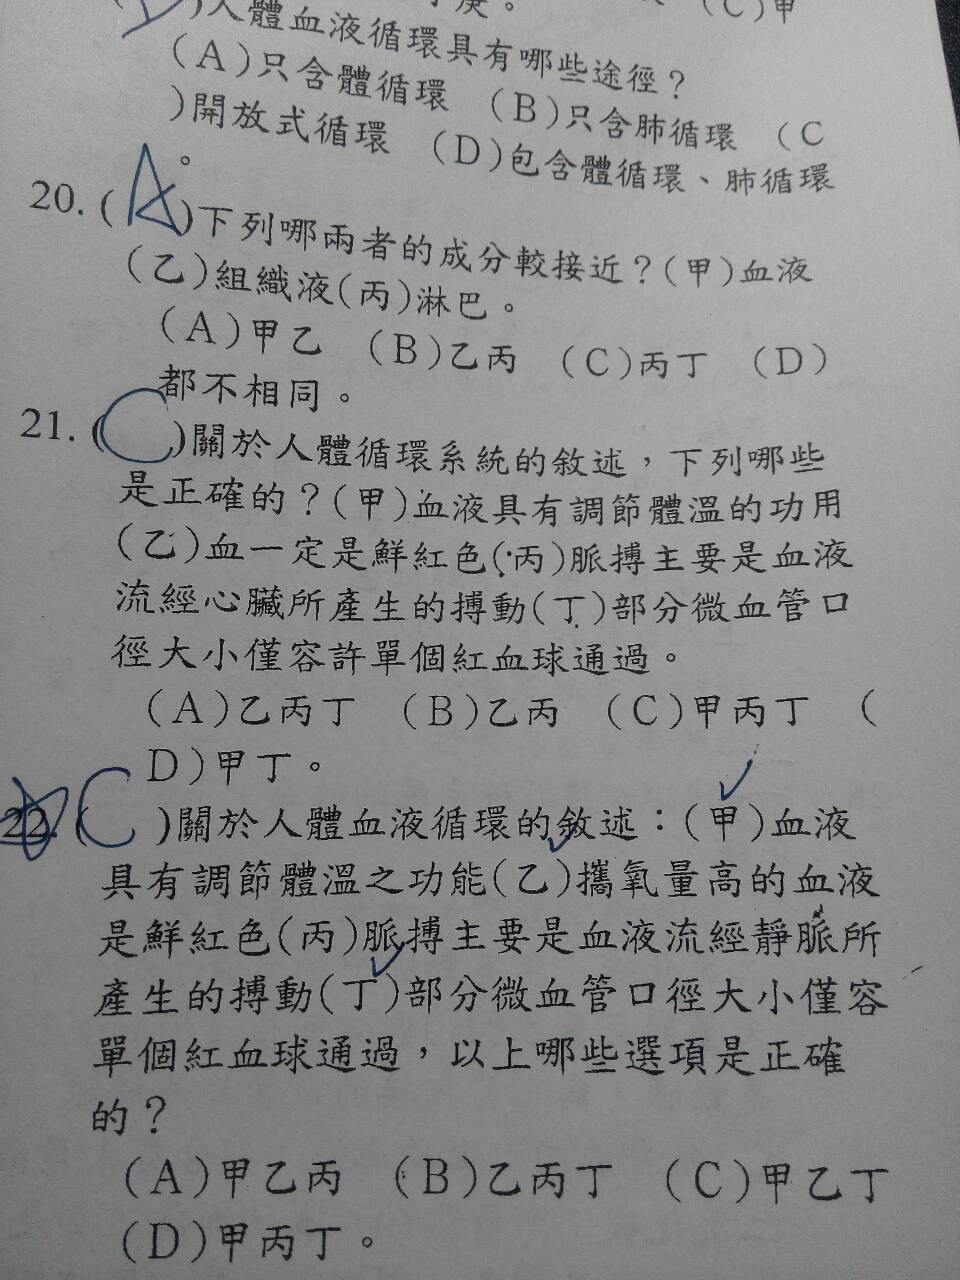 庚。 (C)甲
(D)人體血液循環具有哪些途徑？
(A)只含體循環 (B)只含肺循環 (C
)開放式循環 (D)包含體循環、肺循環
。
20.(A)下列哪兩者的成分較接近？(甲)血液
(乙)組織液(丙)淋巴。
(A)甲乙 (B)乙丙 (C)丙丁 (D)
都不相同。
21.(C)關於人體循環系統的敘述，下列哪些
是正確的？(甲)血液具有調節體溫的功用
(乙)血一定是鮮紅色(丙)脈搏主要是血液
流經心臟所產生的搏動(丁)部分微血管口
徑大小僅容許單個紅血球通過。
(A)乙丙丁 (B)乙丙 (C)甲丙丁 (
D)甲丁。
22.(C)關於人體血液循環的敘述：(甲)血液
具有調節體溫之功能(乙)攜氧量高的血液
是鮮紅色(丙)脈搏主要是血液流經靜脈所
產生的搏動(丁)部分微血管口徑大小僅容
單個紅血球通過，以上哪些選項是正確
的？
(A)甲乙丙 (B)乙丙丁 (C)甲乙丁
(D)甲丙丁。